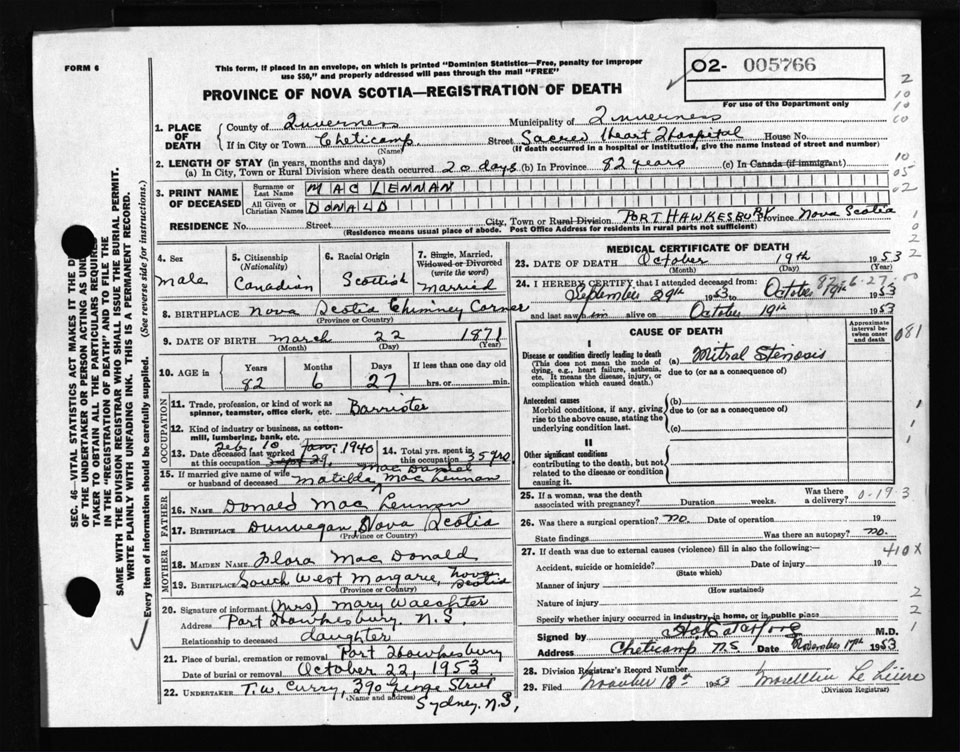 FORM 6
This form, if placed in an envelope, on which is printed "Dominion Statistics—Free, penalty for improper
use $50," and properly addressed will pass through the mail "FREE"
O2- 005766
For use of the Department only
PROVINCE OF NOVA SCOTIA—REGISTRATION OF DEATH
1. PLACE OF DEATH
County of Inverness Municipality of Inverness
If in City or Town Cheticamp (Name) Street Sacred Heart Hospital House No.
(If death occurred in a hospital or institution, give the name instead of street and number)
2. LENGTH OF STAY (in years, months and days)
(a) In City, Town or Rural Division where death occurred 20 days (b) In Province 82 years (c) In Canada (if immigrant)
3. PRINT NAME OF DECEASED
Surname or Last Name MAC LENNAN
All Given or Christian Names DONALD
RESIDENCE No. Street City, Town or Rural Division PORT HAWKESBURY Province Nova Scotia
(Residence means usual place of abode. Post Office Address for residents in rural parts not sufficient)
4. Sex
male
5. Citizenship (Nationality)
Canadian
6. Racial Origin
Scottish
7. Single, Married, Widowed or Divorced (write the word)
married
8. BIRTHPLACE Nova Scotia Chimney Corner
(Province or Country)
9. DATE OF BIRTH March 22 1871
(Month) (Day) (Year)
10. AGE in Years 82 Months 6 Days 27 If less than one day old hrs. or min.
OCCUPATION
11. Trade, profession, or kind of work as spinner, teamster, office clerk, etc. Barrister
12. Kind of industry or business, as cotton-mill, lumbering, bank, etc.
13. Date deceased last worked at this occupation Jan. 1940
14. Total yrs. spent in this occupation 35 yrs
15. If married give name of wife or husband of deceased Matilda Mac Daniel Mac Lennan
FATHER
16. NAME Donald Mac Lennan
17. BIRTHPLACE Dunvegan, Nova Scotia
(Province or Country)
MOTHER
18. MAIDEN NAME Flora Mac Donald
19. BIRTHPLACE South West Margaree, Nova Scotia
(Province or Country)
20. Signature of informant (Mrs) Mary Waechter
Address Port Hawkesbury, N.S.
Relationship to deceased daughter
21. Place of burial, cremation or removal Port Hawkesbury
Date of burial or removal October 22, 1953
22. UNDERTAKER T.W. Curry, 390 George Street
(Name and address)
Sydney, N.S,
MEDICAL CERTIFICATE OF DEATH
23. DATE OF DEATH October 19th 1953
(Month) (Day) (Year)
24. I HEREBY CERTIFY that I attended deceased from:
September 29th 1953 to October 19th 1953
and last saw him alive on October 19th 1953
CAUSE OF DEATH
Approximate interval between onset and death
I
Disease or condition directly leading to death (a) Mitral Stenosis
(This does not mean the mode of dying, e.g., heart failure, asthenia, etc. It means the disease, injury, or complication which caused death.)
due to (or as a consequence of)
Antecedent causes
Morbid conditions, if any, giving rise to the above cause, stating the underlying condition last.
(b)
due to (or as a consequence of)
(c)
II
Other significant conditions
contributing to the death, but not related to the disease or condition causing it.
25. If a woman, was the death associated with pregnancy? Duration weeks. Was there a delivery?
26. Was there a surgical operation? no. Date of operation 19
State findings Was there an autopsy? no.
27. If death was due to external causes (violence) fill in also the following:—
Accident, suicide or homicide? Date of injury 19
(State which)
Manner of injury
(How sustained)
Nature of injury
Specify whether injury occurred in industry, in home, or in public place
Signed by M.D.
Address Cheticamp N.S. Date November 17th 1953
28. Division Registrar's Record Number
29. Filed November 18th 1953
(Division Registrar)
SEC. 46—VITAL STATISTICS ACT MAKES IT THE
OF THE UNDERTAKER OR PERSON ACTING AS
TAKER TO OBTAIN ALL THE PARTICULARS
IN THE "REGISTRATION OF DEATH" AND TO FILE THE
SAME WITH THE DIVISION REGISTRAR WHO SHALL ISSUE THE BURIAL PERMIT.
WRITE PLAINLY WITH UNFADING INK. THIS IS A PERMANENT RECORD.
Every item of information should be carefully supplied. (See reverse side for instructions.)
2
10
10
10
05
02
081
0-19 3
410X
2
2
1